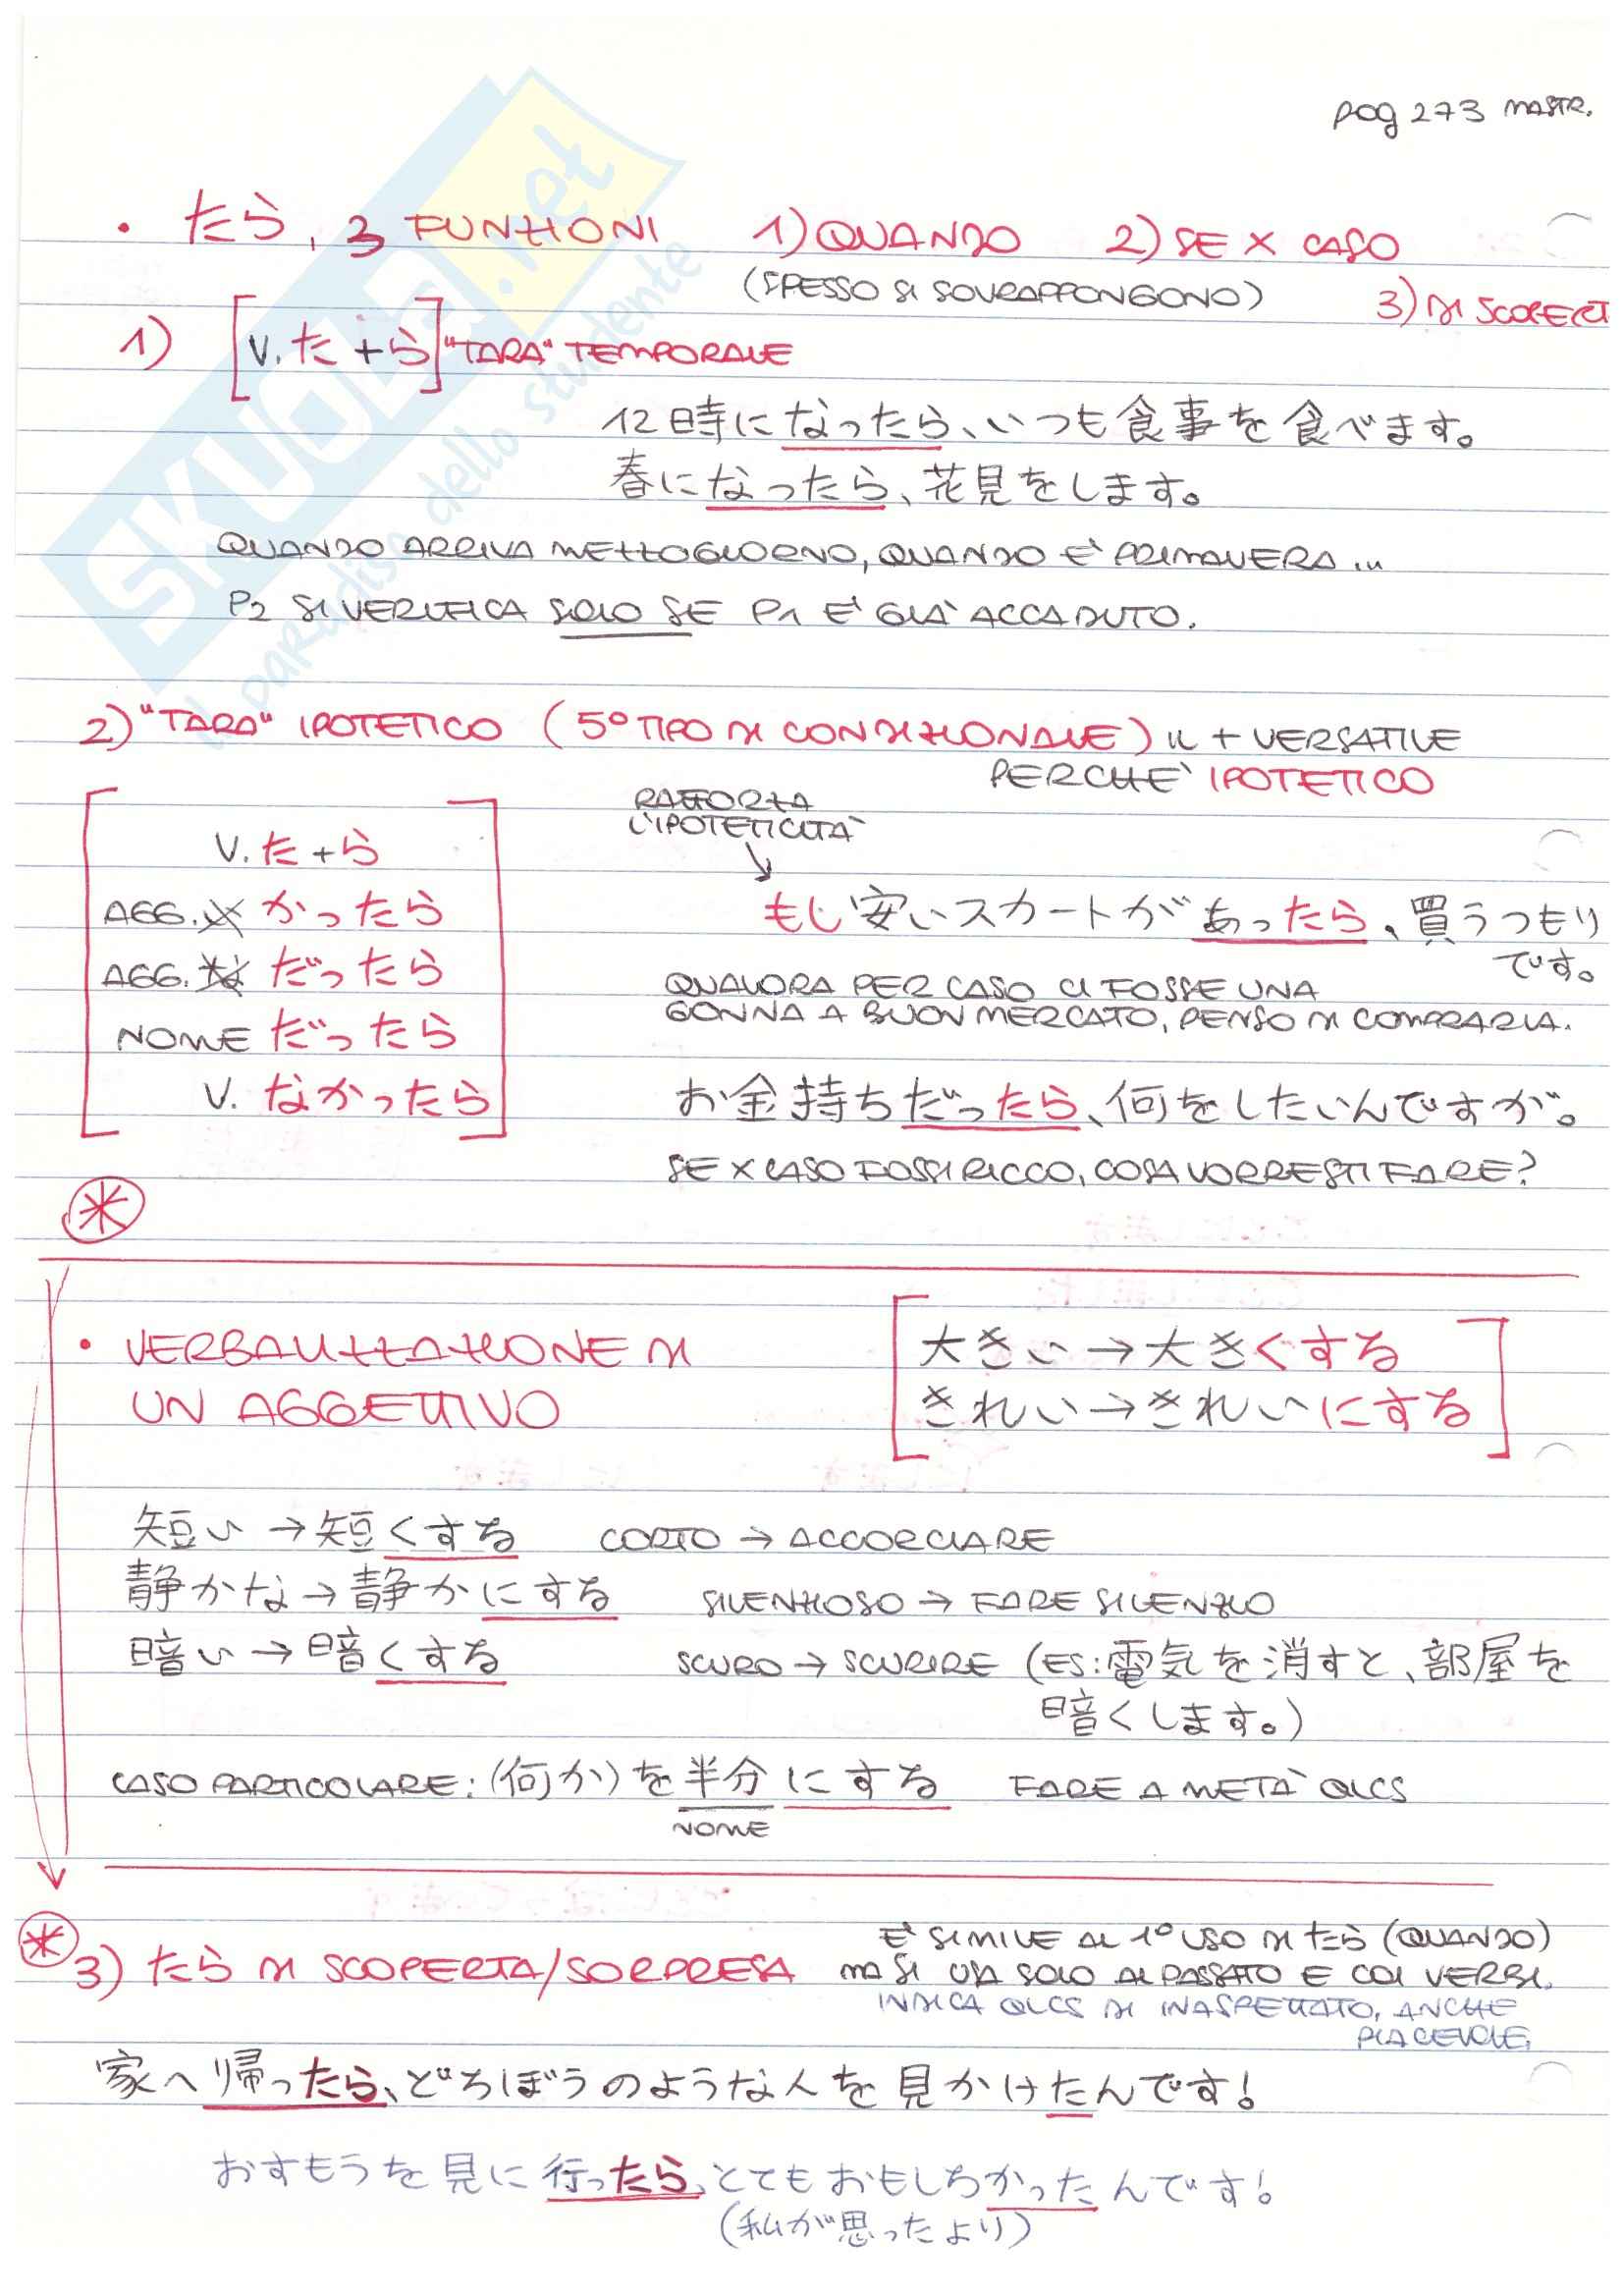 pag 273 MASTR.
• たら, 3 FUNZIONI 1) QUANDO 2) SE X CASO
(SPESSO SI SOVRAPPONGONO) 3) DI SCOPERT
1) [V. た + ら] "TARA" TEMPORALE
12時になったら、いつも食事を食べます。
春になったら、花見をします。
QUANDO ARRIVA MEZZOGIORNO, QUANDO È PRIMAVERA ...
P2 SI VERIFICA SOLO SE P1 È GIÀ ACCADUTO.
2) "TARA" IPOTETICO (5° TIPO DI CONDIZIONALE) IL + VERSATILE
PERCHÈ IPOTETICO
RAFFORZA
L'IPOTETICITÀ
↓
V. た + ら
AGG. い かったら
AGG. な だったら
NOME だったら
V. なかったら
もし安いスカートがあったら、買うつもり
です。
QUALORA PER CASO CI FOSSE UNA
GONNA A BUON MERCATO, PENSO DI COMPRARLA.
お金持ちだったら、何をしたいんですが。
SE X CASO FOSSI RICCO, COSA VORRESTI FARE?
*
• VERBALIZZAZIONE DI
UN AGGETTIVO
大きい → 大きくする
きれい → きれいにする
短い → 短くする CORTO → ACCORCIARE
静かな → 静かにする SILENZIOSO → FARE SILENZIO
暗い → 暗くする SCURO → SCURIRE (ES: 電気を消すと、部屋を
暗くします。)
CASO PARTICOLARE: (何か)を半分にする FARE A METÀ QLCS
NOME
* 3) たら DI SCOPERTA/SORPRESA
È SIMILE AL 1° USO DI たら (QUANDO)
MA SI USA SOLO AL PASSATO E COI VERBI.
INDICA QLCS DI INASPETTATO, ANCHE
PIACEVOLE.
家へ帰ったら、どろぼうのような人を見かけたんです!
おすもうを見に行ったら、とてもおもしろかったんです!
(私が思ったより)
SKUOLA.net
il paradiso dello studente